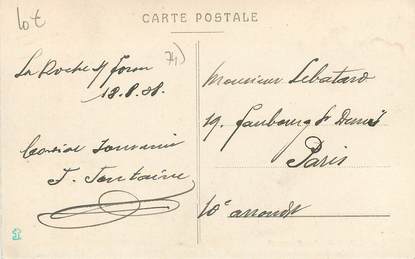 lot
CARTE POSTALE
74)
La Roche s/ Foron
18.8.28.
Cordial Souvenir
T. Fontaine
Monsieur Lebatard
19. Faubourg St Denis
Paris
10e arrondt